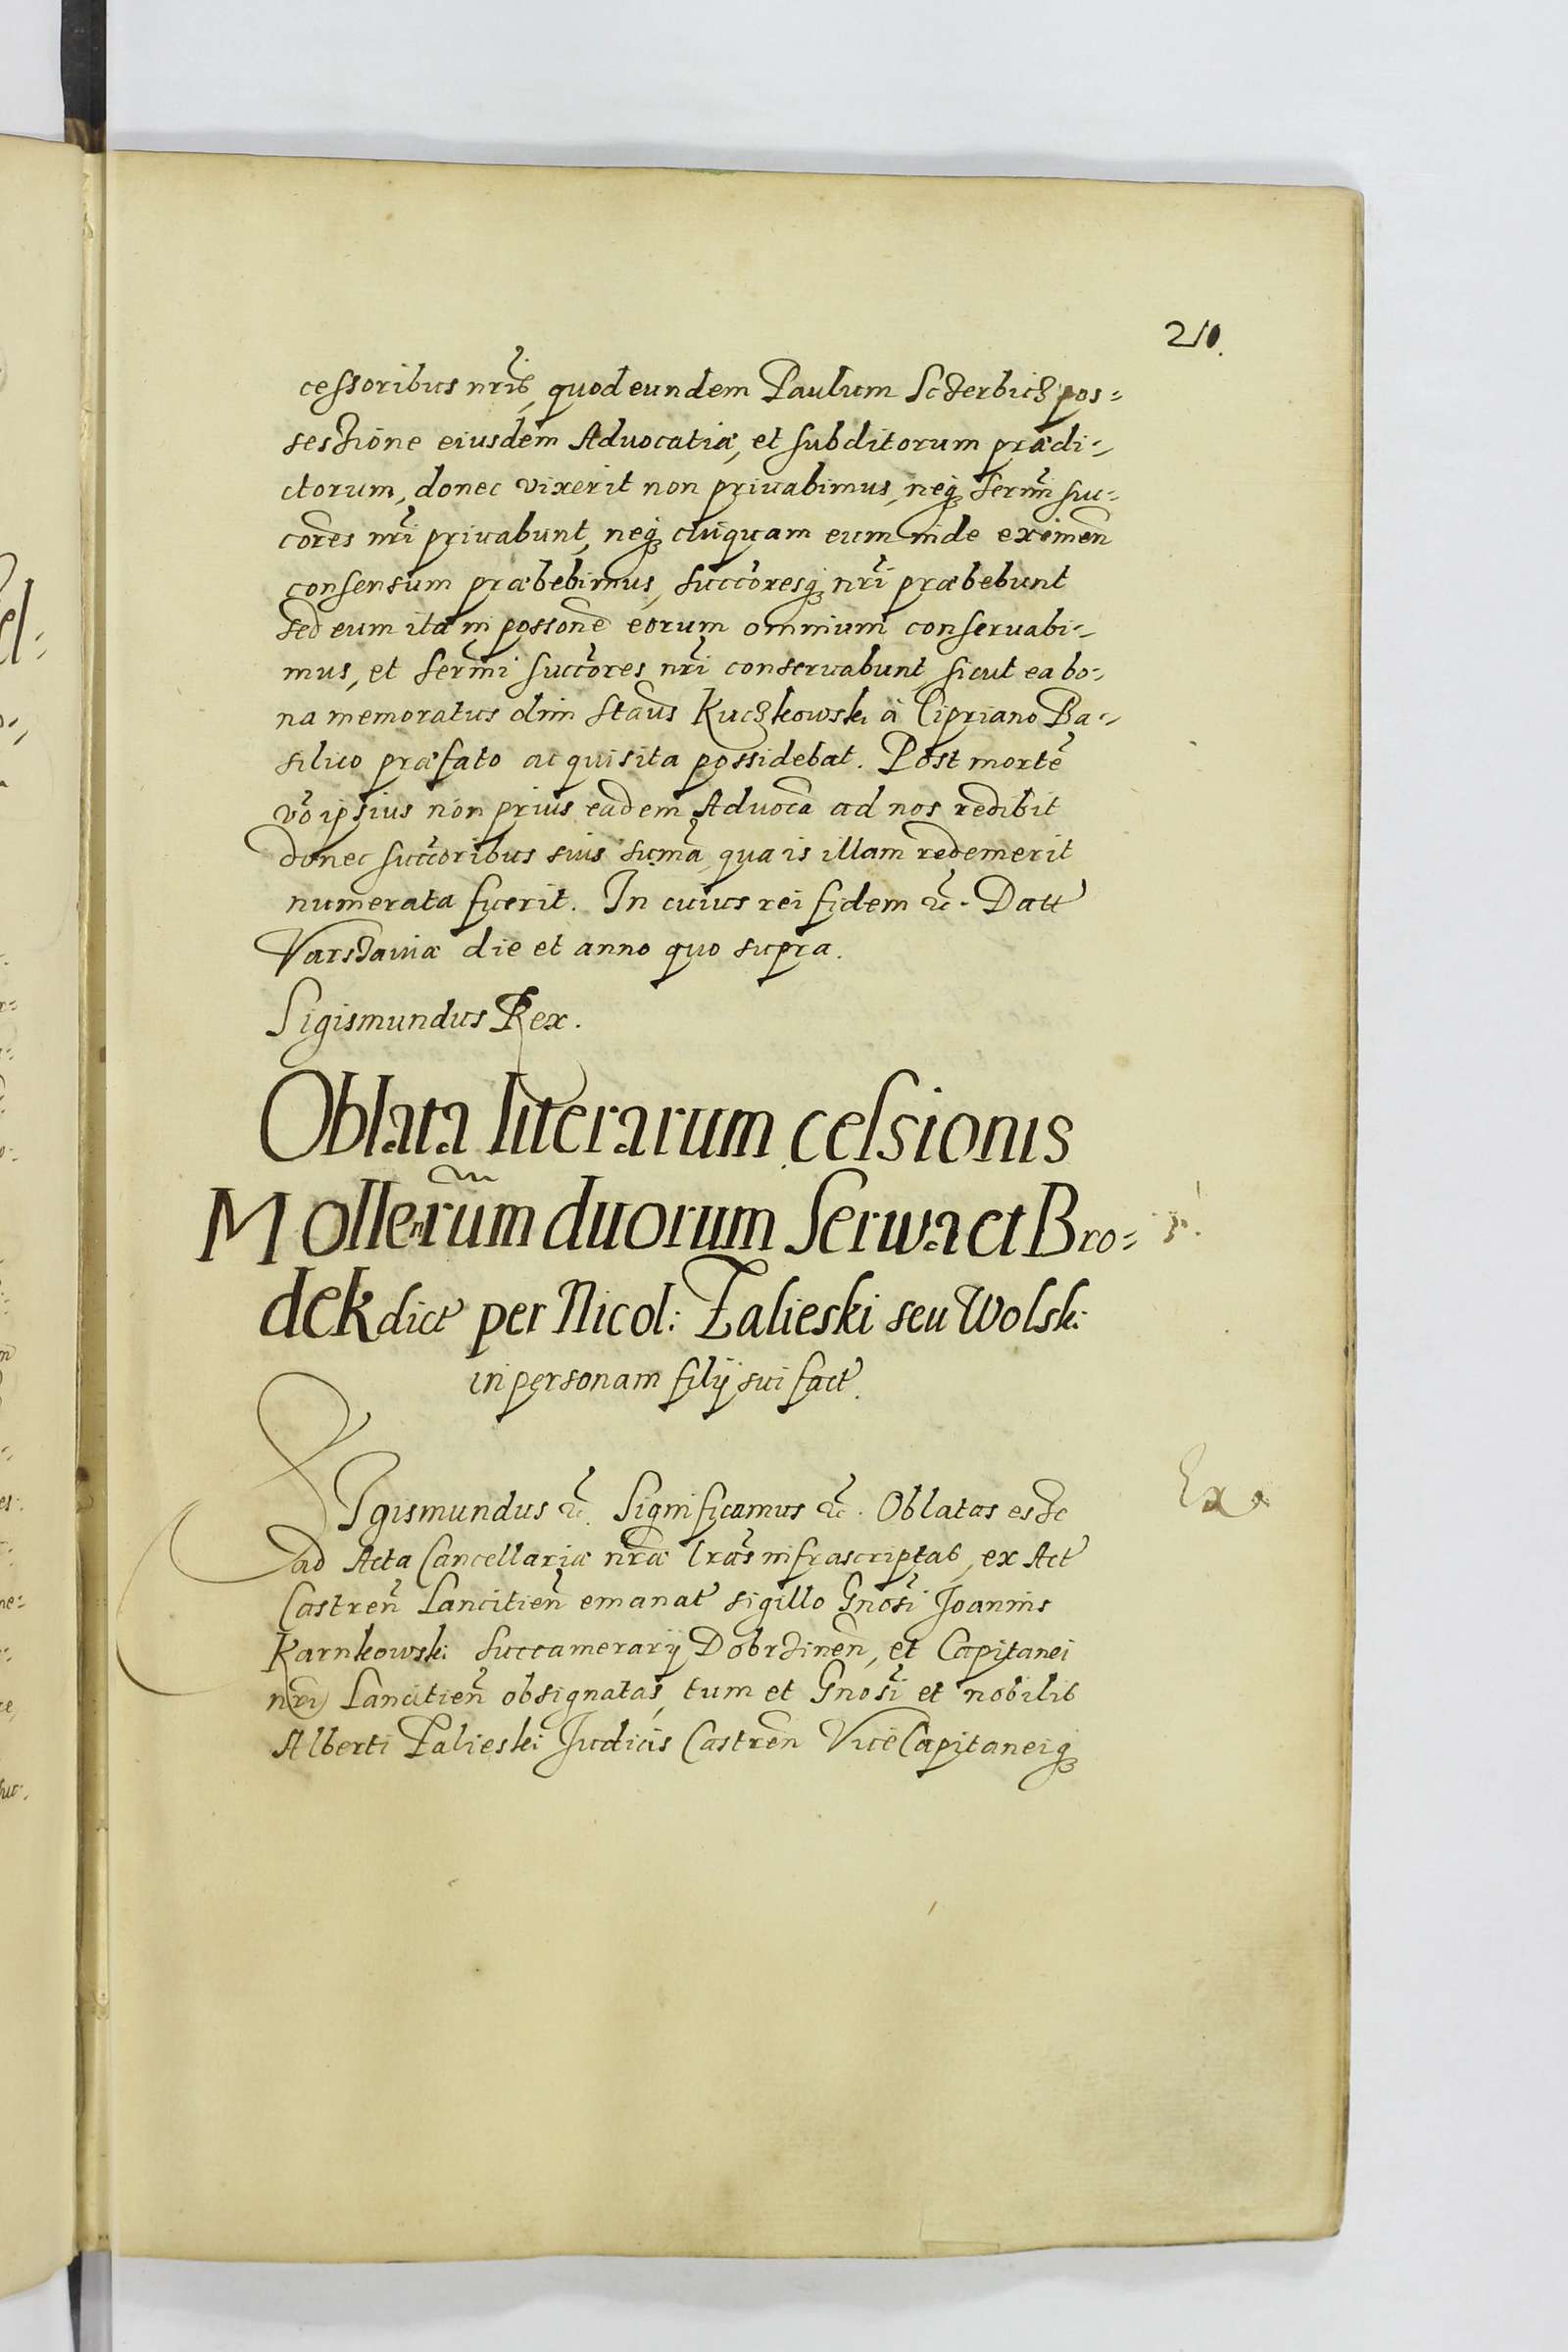 210.
cessoribus nr̃is, quod eundem Paulum Sczerbicz pos=
sessione eiusdem Advocatiæ, et subditorum prædi=
ctorum, donec vixerit non privabimus, neq₃ serm̃i suc=
cores nr̃i privabunt, neq₃ cuiquam eum inde eximen̄
consensum præbebimus, succoresq₃ nr̃i præbebunt
sed eum ita in possone eorum omnium conservabi=
mus, et serm̃i succores nr̃i conservabunt, sicut ea bo=
na memoratus olim Staũs Kuczkowski à Cipriano Ba=
silico præfato acquisita possidebat. Post mortẽ
võ ipsius non prius eadem Advoca ad nos redibit
donec succoribus suis suma, qua is illam redemerit
numerata fuerit. In cuius rei fidem &c. Datt
Varsaviæ die et anno quo supra.
Sigismundus Rex.
Oblata literarum cessionis
Mollenrũm duorum Serwa et Bro=
dek dict per Nicol: Zalieski seu Wolski
in personam filij sui fact.
Sigismundus &c. Significamus &c. Oblatas esse
ad Acta Cancellariæ nr̃æ lr̃as infrascriptas, ex Act
Castren̄ Lancitien̄ emanat sigillo Gnosi Joannis
Karnkowski Succamerarij Dobrzinen̄, et Capitanei
nr̃i Lancitien̄ obsignatas, tum et Gnosi et nobilis
Alberti Zalieski Judicis Castren̄ ViceCapitaneiq₃
Ex